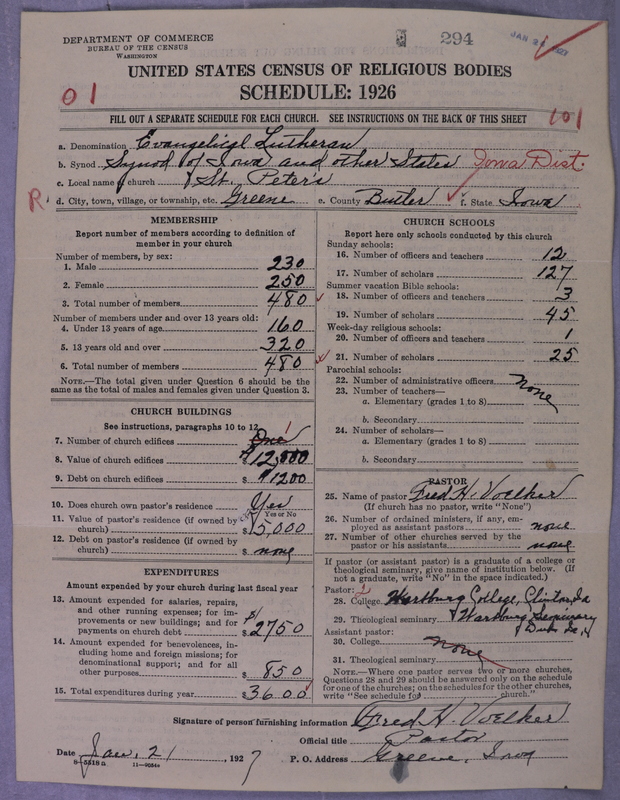 DEPARTMENT OF COMMERCE
BUREAU OF THE CENSUS
WASHINGTON
294
UNITED STATES CENSUS OF RELIGIOUS BODIES
SCHEDULE: 1926
01
101
FILL OUT A SEPARATE SCHEDULE FOR EACH CHURCH. SEE INSTRUCTIONS ON THE BACK OF THIS SHEET
a. Denomination Evangelical Lutheran
b. Synod Synod of Iowa and other States Iowa Dist.
c. Local name of church St. Peter's
R. d. City, town, village, or township, etc. Greene e. County Butler f. State Iowa
MEMBERSHIP
Report number of members according to definition of
member in your church
Number of members, by sex:
1. Male 230
2. Female 250
3. Total number of members 480
Number of members under and over 13 years old:
4. Under 13 years of age 160
5. 13 years old and over 320
6. Total number of members 480
NOTE.—The total given under Question 6 should be
same as the total of males and females given under Question 3.
CHURCH BUILDINGS
See instructions, paragraphs 10 to 12
7. Number of church edifices One 1
8. Value of church edifices $12,000
9. Debt on church edifices $1200
10. Does church own pastor's residence Yes
Yes or No
11. Value of pastor's residence (if owned by
church) $5,000
12. Debt on pastor's residence (if owned by
church) $ none
EXPENDITURES
Amount expended by your church during last fiscal year
13. Amount expended for salaries, repairs,
and other running expenses; for im-
provements or new buildings; and for
payments on church debt $2750
14. Amount expended for benevolences, in-
cluding home and foreign missions; for
denominational support; and for all
other purposes $850
15. Total expenditures during year $3600
CHURCH SCHOOLS
Report here only schools conducted by this church
Sunday schools:
16. Number of officers and teachers 12
17. Number of scholars 127
Summer vacation Bible schools:
18. Number of officers and teachers 3
19. Number of scholars 45
Week-day religious schools:
20. Number of officers and teachers 1
21. Number of scholars 25
Parochial schools:
22. Number of administrative officers none
23. Number of teachers—
a. Elementary (grades 1 to 8)
b. Secondary
24. Number of scholars—
a. Elementary (grades 1 to 8)
b. Secondary
PASTOR
25. Name of pastor Fred H. Voelker
(If church has no pastor, write "None")
26. Number of ordained ministers, if any, em-
ployed as assistant pastors none
27. Number of other churches served by the
pastor or his assistants none
If pastor (or assistant pastor) is a graduate of a college or
theological seminary, give name of institution below. (If
not a graduate, write "No" in the space indicated.)
Pastor:
28. College Wartburg College, Clinton, Ia
29. Theological seminary Wartburg Seminary
Assistant pastor:
30. College none
31. Theological seminary
NOTE.—Where one pastor serves two or more churches,
Questions 28 and 29 should be answered only on the schedule
for one of the churches; on the schedules for the other churches,
write "See schedule for church."
Signature of person furnishing information Fred H. Voelker
Official title Pastor
Date Jan. 21, 1927 P. O. Address Greene, Iowa
8-5518a 11-9084a